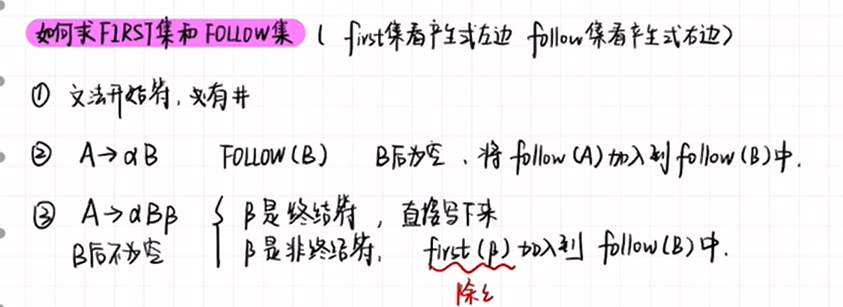 如何求FIRST集和FOLLOW集 ( first集看产生式左边 follow集看产生式右边)
① 文法开始符,必有井
② A→αB FOLLOW(B) B后为空,将follow(A)加入到follow(B)中.
③ A→αBβ { β是终结符,直接写下来
B后不为空 β是非终结符, first(β)加入到 follow(B)中.
除ε